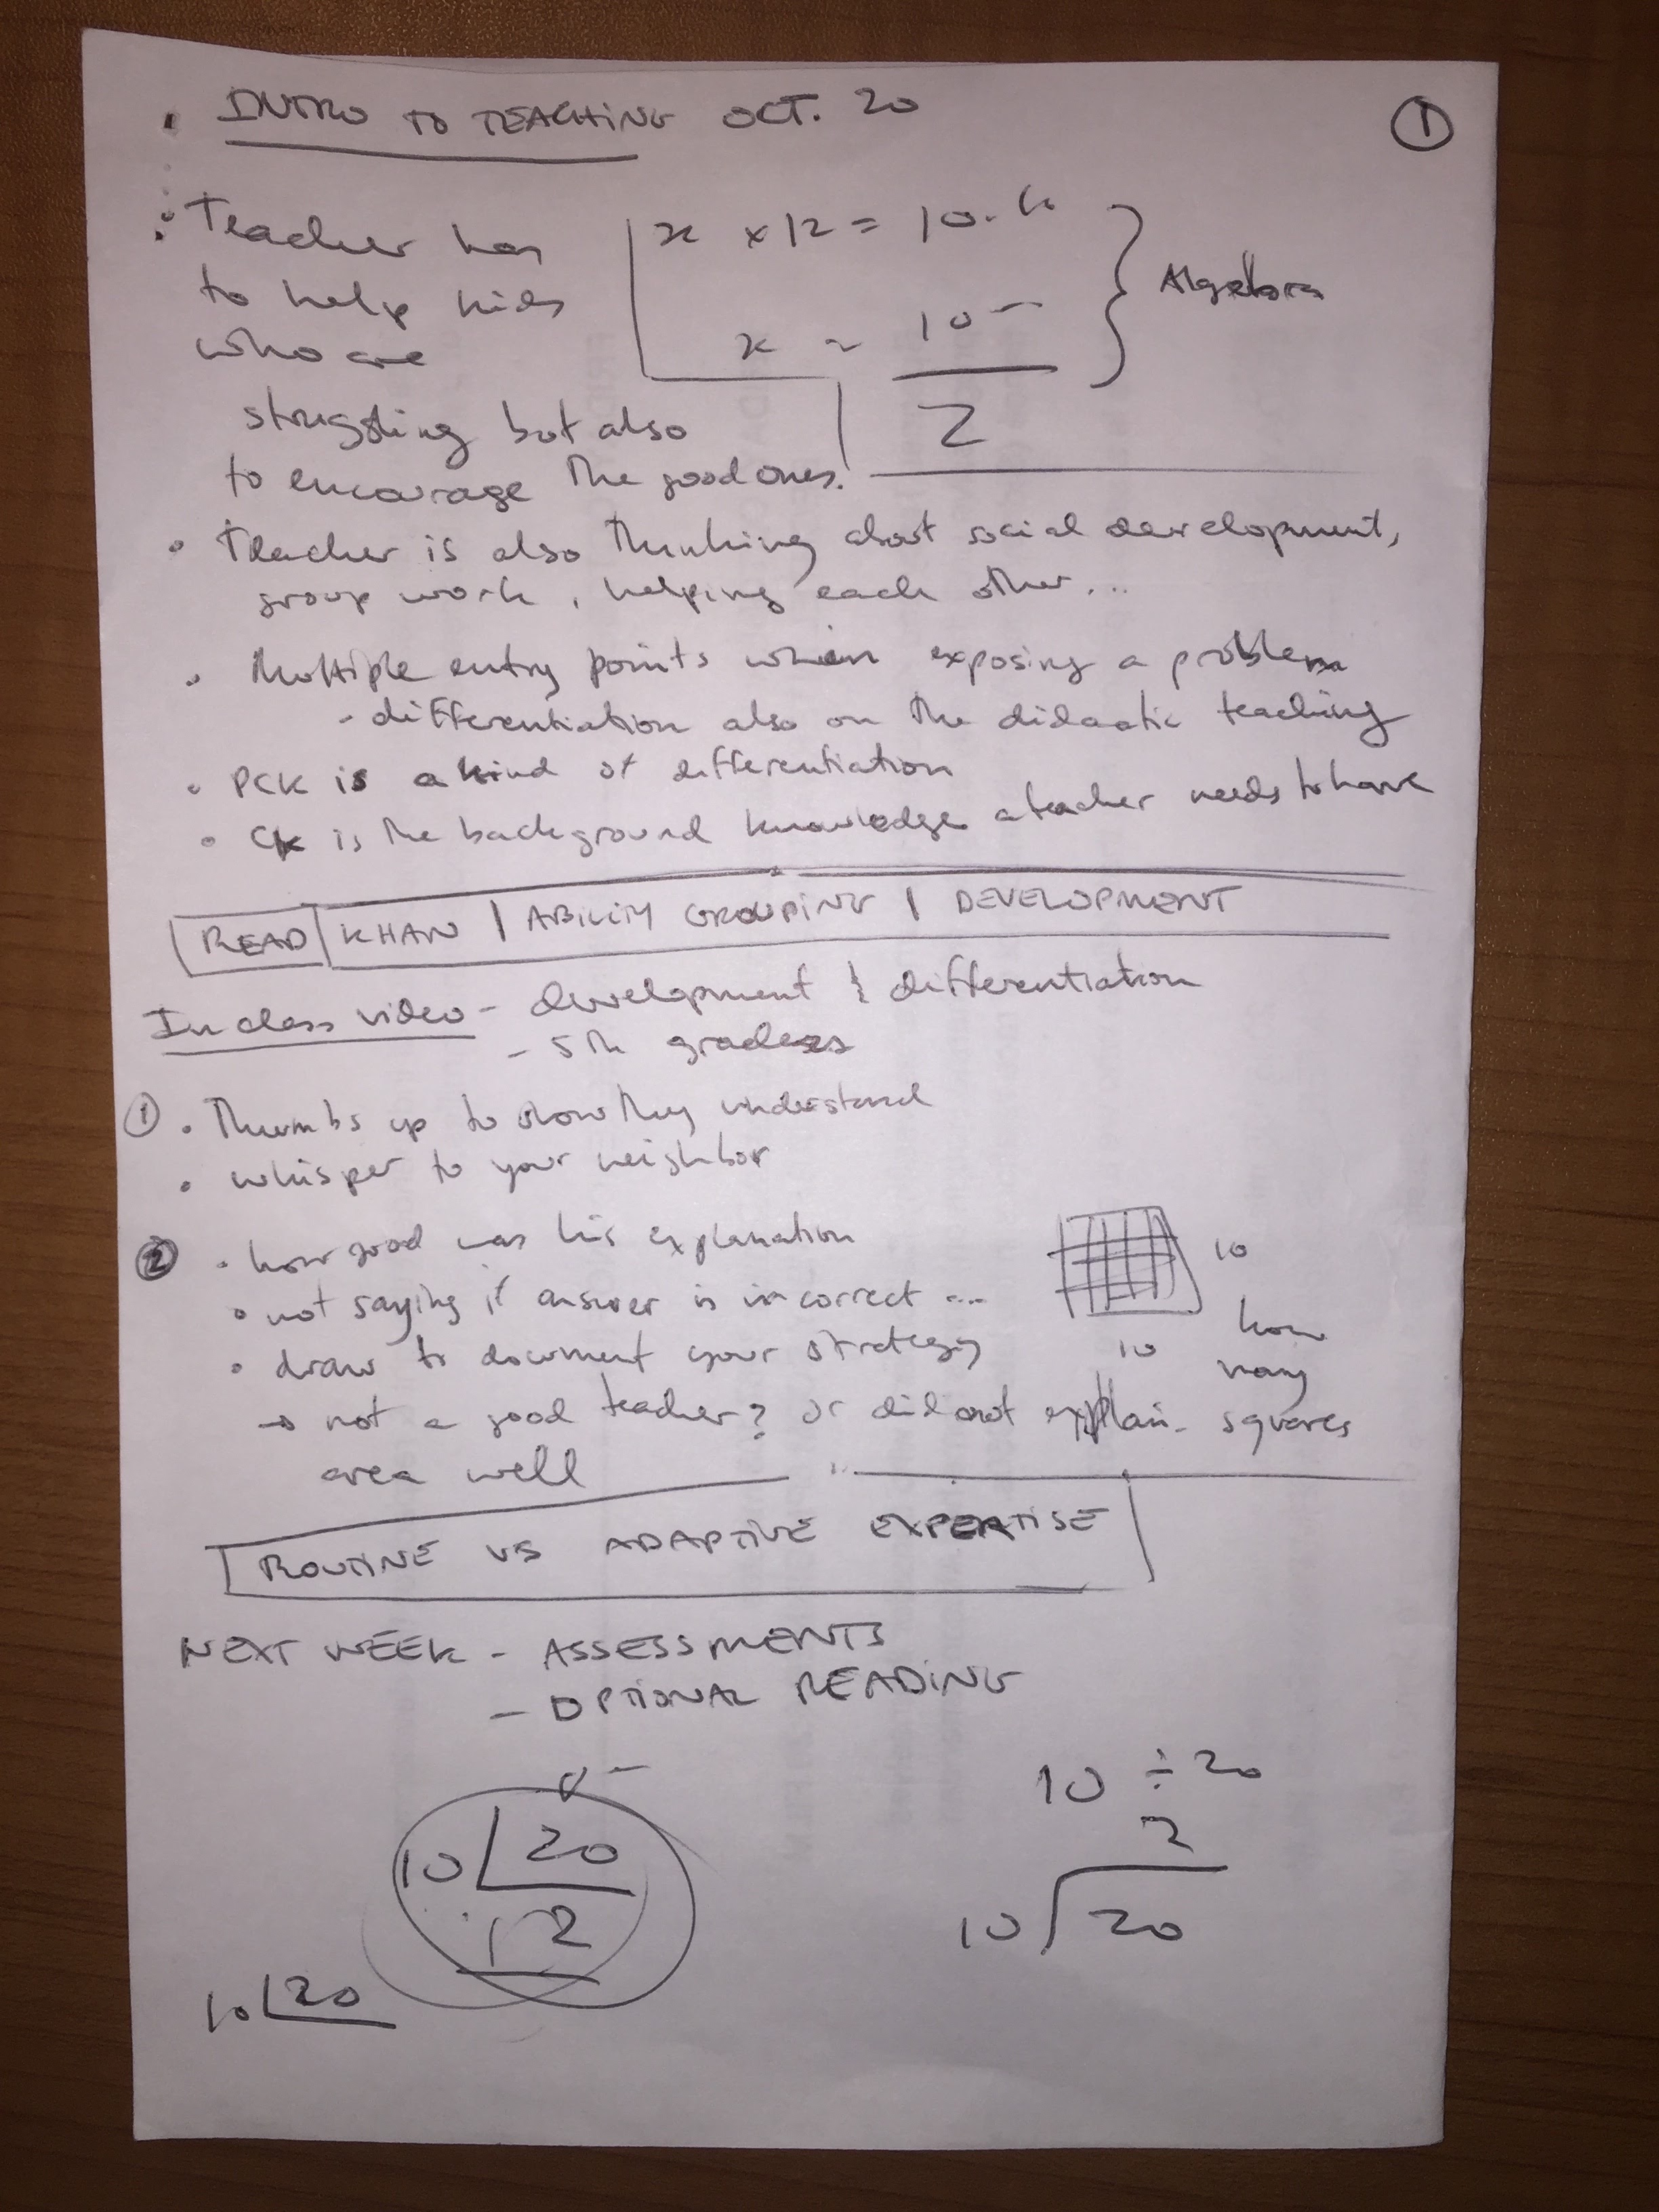 INTRO TO TEACHING OCT. 20
1
Teacher has
to help kids
who are
struggling but also
to encourage the good ones.
x x 12 = 10.
x = 10
2
Algebra
Teacher is also thinking about social development,
group work, helping each other...
Multiple entry points when exposing a problem
- differentiation also on the didactic teaching
PCK is a kind of differentiation
CK is the background knowledge a teacher needs to have
READ | KHAN | ABILITY GROUPING | DEVELOPMENT
In class video - development & differentiation
- 5th graders
1 • Thumbs up to show they understand
• whisper to your neighbor
2 • how good was his explanation
• not saying if answer is incorrect ...
• draw to document your strategy
→ not a good teacher? or did not explain
area well
10
10
how
many
squares
ROUTINE VS ADAPTIVE EXPERTISE
NEXT WEEK - ASSESSMENTS
- OPTIONAL READING
10 20
12
10 20
10 ÷ 20
2
10 20